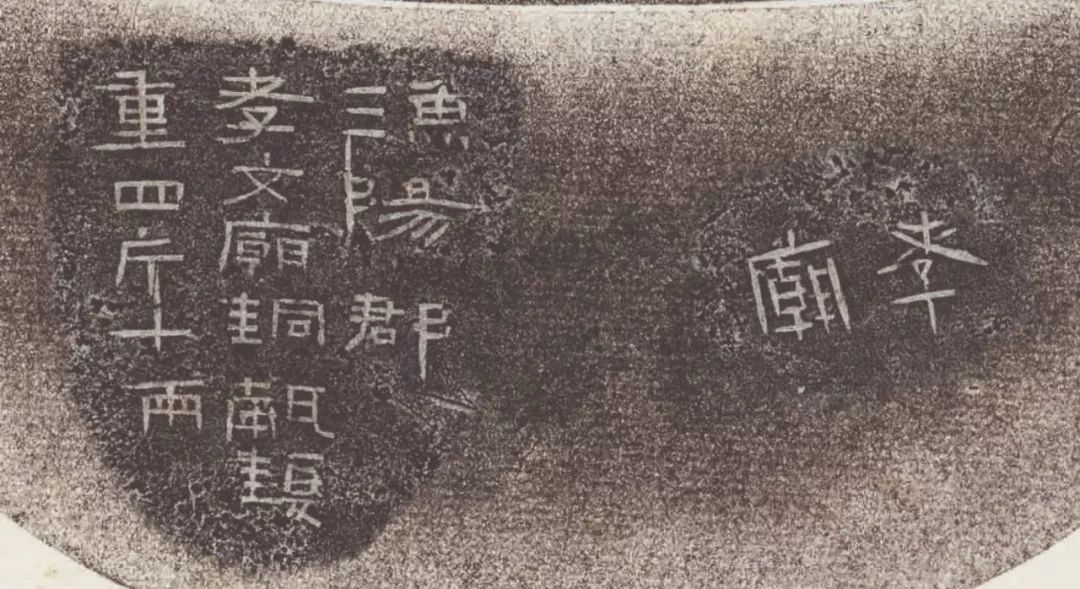 孝
廟
漁陽郡
孝文廟銅甗鍑
重四斤七兩